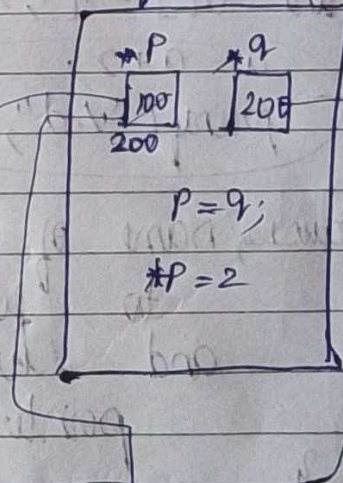 *p *q
100 200
200
p = q;
*p = 2